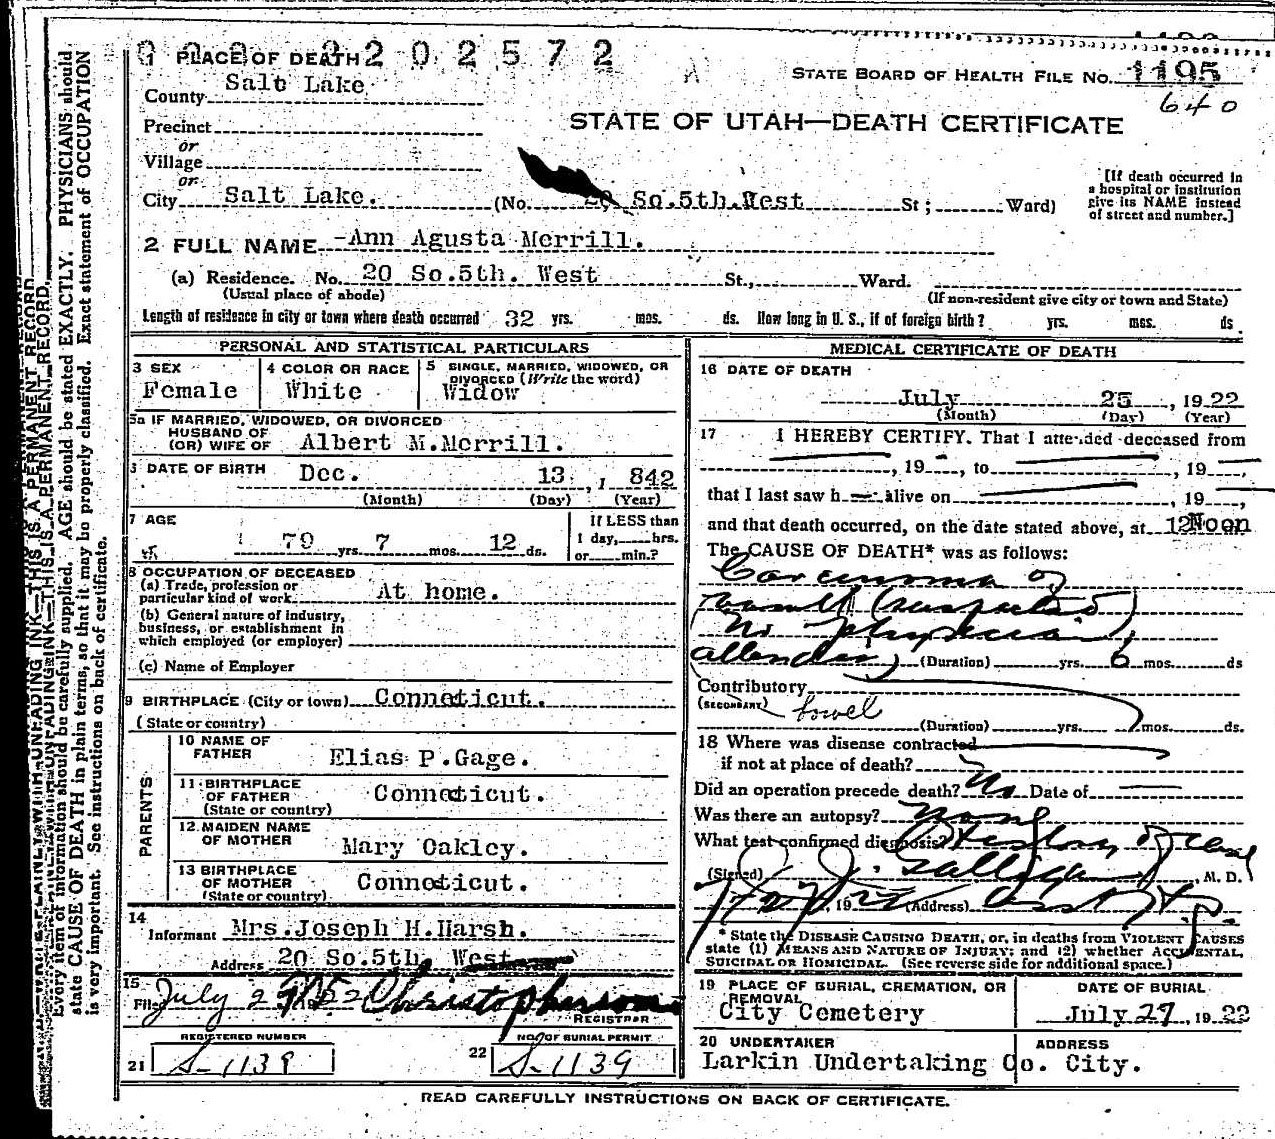 2 0 2 5 7 2
1 PLACE OF DEATH
STATE BOARD OF HEALTH FILE NO. 1195
640
County Salt Lake
STATE OF UTAH—DEATH CERTIFICATE
Precinct
or
Village
or
City Salt Lake. (No. 20 So.5th.West St; Ward)
[If death occurred in
a hospital or institution
give its NAME instead
of street and number.]
2 FULL NAME Ann Agusta Merrill.
(a) Residence. No. 20 So.5th. West St., Ward.
(Usual place of abode) (If non-resident give city or town and State)
Length of residence in city or town where death occurred 32 yrs. mos. ds. How long in U. S., if of foreign birth? yrs. mos. ds.
PERSONAL AND STATISTICAL PARTICULARS
3 SEX Female
4 COLOR OR RACE White
5 SINGLE, MARRIED, WIDOWED, OR
DIVORCED (Write the word)
Widow
5a IF MARRIED, WIDOWED, OR DIVORCED
HUSBAND OF
(OR) WIFE OF Albert M.Merrill.
DATE OF BIRTH Dec. 13, 1 842
(Month) (Day) (Year)
7 AGE 79 yrs. 7 mos. 12 ds.
If LESS than
1 day, hrs.
or min.?
8 OCCUPATION OF DECEASED
(a) Trade, profession or
particular kind of work At home.
(b) General nature of industry,
business, or establishment in
which employed (or employer)
(c) Name of Employer
9 BIRTHPLACE (City or town) Conneticut.
(State or country)
PARENTS
10 NAME OF
FATHER Elias P.Gage.
11 BIRTHPLACE
OF FATHER
(State or country) Conneticut.
12 MAIDEN NAME
OF MOTHER Mary Oakley.
13 BIRTHPLACE
OF MOTHER
(State or country) Conneticut.
14
Informant Mrs.Joseph H.Harsh.
Address 20 So.5th, West
15
Filed July 2 Christopherson
REGISTRAR
REGISTERED NUMBER
21 S-1139
NO. OF BURIAL PERMIT
22 S-1139
MEDICAL CERTIFICATE OF DEATH
16 DATE OF DEATH
July 25, 1922
(Month) (Day) (Year)
17 I HEREBY CERTIFY. That I attended deceased from
, 19 , to , 19
that I last saw h alive on , 19 ,
and that death occurred, on the date stated above, at 12 Noon
The CAUSE OF DEATH* was as follows:
Carcinoma of
bowell (suspected)
No physician
attending) (Duration) yrs. 6 mos. ds
Contributory
(SECONDARY) bowel
(Duration) yrs. mos. ds.
18 Where was disease contracted
if not at place of death?
Did an operation precede death? No Date of
Was there an autopsy? None
What test confirmed diagnosis? History of case
(Signed) , M. D.
, 19 (Address)
* State the DISEASE CAUSING DEATH, or, in deaths from VIOLENT CAUSES
state (1) MEANS AND NATURE OF INJURY; and (2) whether ACCIDENTAL,
SUICIDAL OR HOMICIDAL. (See reverse side for additional space.)
19 PLACE OF BURIAL, CREMATION, OR
REMOVAL
City Cemetery
DATE OF BURIAL
July 27, 1922
20 UNDERTAKER ADDRESS
Larkin Undertaking Co. City.
READ CAREFULLY INSTRUCTIONS ON BACK OF CERTIFICATE.
WRITE PLAINLY, WITH UNFADING INK—THIS IS A PERMANENT RECORD.
Every item of information should be carefully supplied. AGE should be stated EXACTLY. PHYSICIANS should
state CAUSE OF DEATH in plain terms, so that it may be properly classified. Exact statement of OCCUPATION
is very important. See instructions on back of certificate.